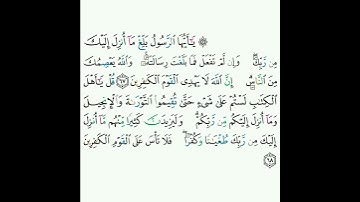 ۞ يَٰٓأَيُّهَا ٱلرَّسُولُ بَلِّغْ مَآ أُنزِلَ إِلَيْكَ
مِن رَّبِّكَ ۖ وَإِن لَّمْ تَفْعَلْ فَمَا بَلَّغْتَ رِسَالَتَهُۥ ۚ وَٱللَّهُ يَعْصِمُكَ
مِنَ ٱلنَّاسِ ۗ إِنَّ ٱللَّهَ لَا يَهْدِى ٱلْقَوْمَ ٱلْكَٰفِرِينَ ٦٧ قُلْ يَٰٓأَهْلَ
ٱلْكِتَٰبِ لَسْتُمْ عَلَىٰ شَىْءٍ حَتَّىٰ تُقِيمُوا۟ ٱلتَّوْرَىٰةَ وَٱلْإِنجِيلَ
وَمَآ أُنزِلَ إِلَيْكُم مِّن رَّبِّكُمْ ۗ وَلَيَزِيدَنَّ كَثِيرًا مِّنْهُم مَّآ أُنزِلَ
إِلَيْكَ مِن رَّبِّكَ طُغْيَٰنًا وَكُفْرًا ۖ فَلَا تَأْسَ عَلَى ٱلْقَوْمِ ٱلْكَٰفِرِينَ
٦٨